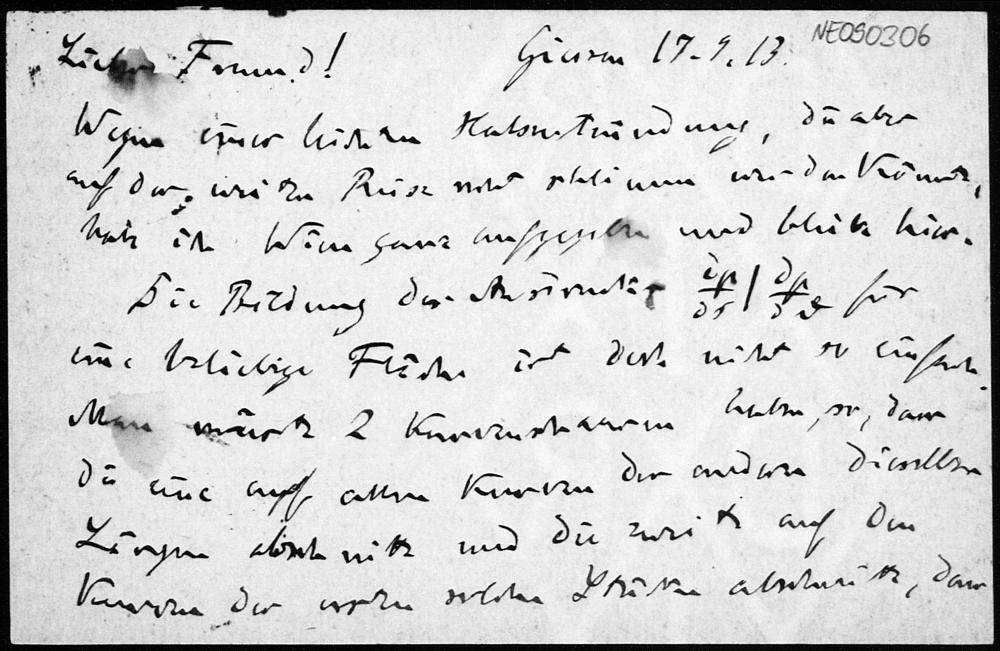 NE090306
Lieber Freund! Giessen 17.9.13.
Wegen einer leichten Halsentzündung, die aber
auf der weiten Reise recht schlimm werden könnte,
habe ich Wien ganz aufgegeben und bleibe hier.
Die Bildung der ∂p/∂s | ∂p/∂ϑ für
eine beliebige Fläche ist doch nicht so einfach.
Man müsste 2 Kurvenscharen haben, so, dass
die eine auf allen Kurven der anderen dieselben
Längen abschneidet und die zweite auf den
Kurven der ersten solche Stücke abschneidet, dass